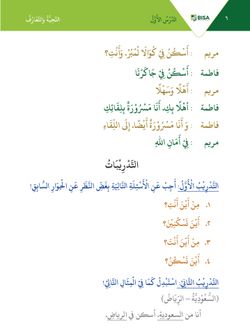 ٦ BISA الدَّرْسُ الأَوَّلُ التَّحِيَّةُ وَالتَّعَارُفُ
مريم : أَسْكُنُ فِيْ كُوَالَا لُمْبُرْ، وَأَنْتِ؟
فاطمة : أَسْكُنُ فِيْ جَاكَرْتَا
مريم : أَهْلًا وَسَهْلًا
فاطمة : أَهْلًا بِكِ، أَنَا مَسْرُوْرَةٌ بِلِقَائِكِ
فاطمة : وَ أَنَا مَسْرُوْرَةٌ أَيْضًا، إِلَى اللِّقَاءِ
مريم : فِيْ أَمَانِ اللهِ
التَّدْرِيْبَاتُ
التَّدْرِيْبُ الأَوَّلُ: أَجِبْ عَنِ الْأَسْئِلَةِ التَّالِيَةِ بِغَضِّ النَّظَرِ عَنِ الْحِوَارِ السَّابِقِ!
١. مِنْ أَيْنَ أَنْتِ؟
٢. أَيْنَ تَسْكُنِيْنَ؟
٣. مِنْ أَيْنَ أَنْتَ؟
٤. أَيْنَ تَسْكُنُ؟
التَّدْرِيْبُ الثَّانِيْ: اسْتَبْدِلْ كَمَا فِيْ الْمِثَالِ التَّالِيْ!
(السُّعُوْدِيَّةُ – الرِّيَاضُ)
أنا من السعودية، أسكن في الرياض.